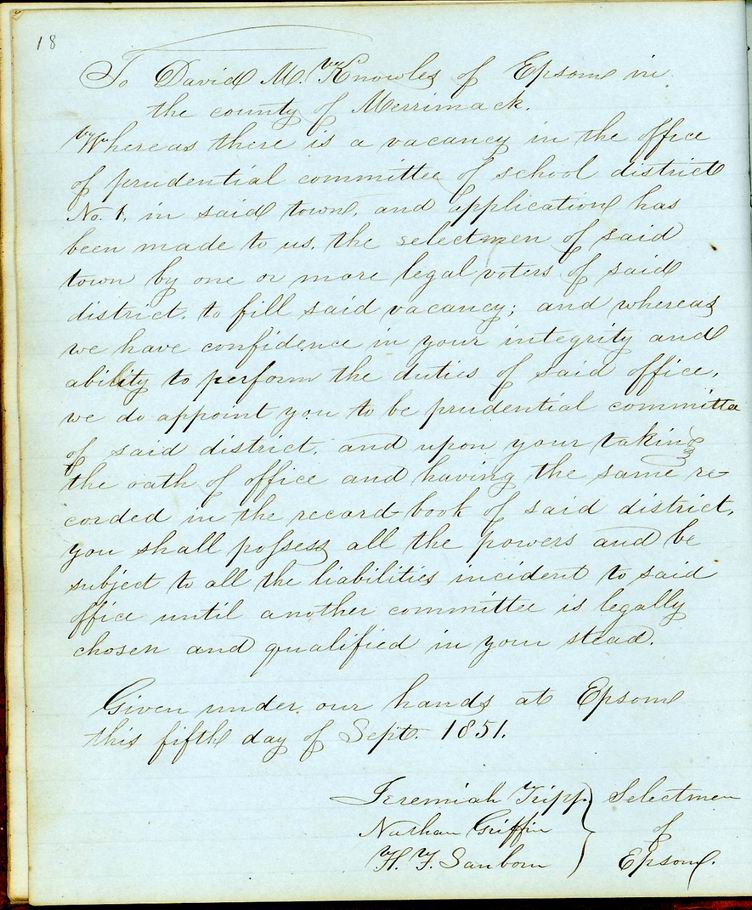 18
To David M. Knowles of Epsom in
the county of Merrimack.
Whereas there is a vacancy in the office
of prudential committee of school district
No. 1, in said town, and application has
been made to us, the selectmen of said
town by one or more legal voters of said
district, to fill said vacancy; and whereas
we have confidence in your integrity and
ability to perform the duties of said office,
we do appoint you to be prudential committee
of said district, and upon your taking
the oath of office and having the same re-
corded in the record-book of said district,
you shall possess all the powers and be
subject to all the liabilities incident to said
office until another committee is legally
chosen and qualified in your stead.
Given under our hands at Epsom
this fifth day of Sept. 1851.
Jeremiah Tripp } Selectmen
Nathan Griffin } of
H. F. Sanborn } Epsom.